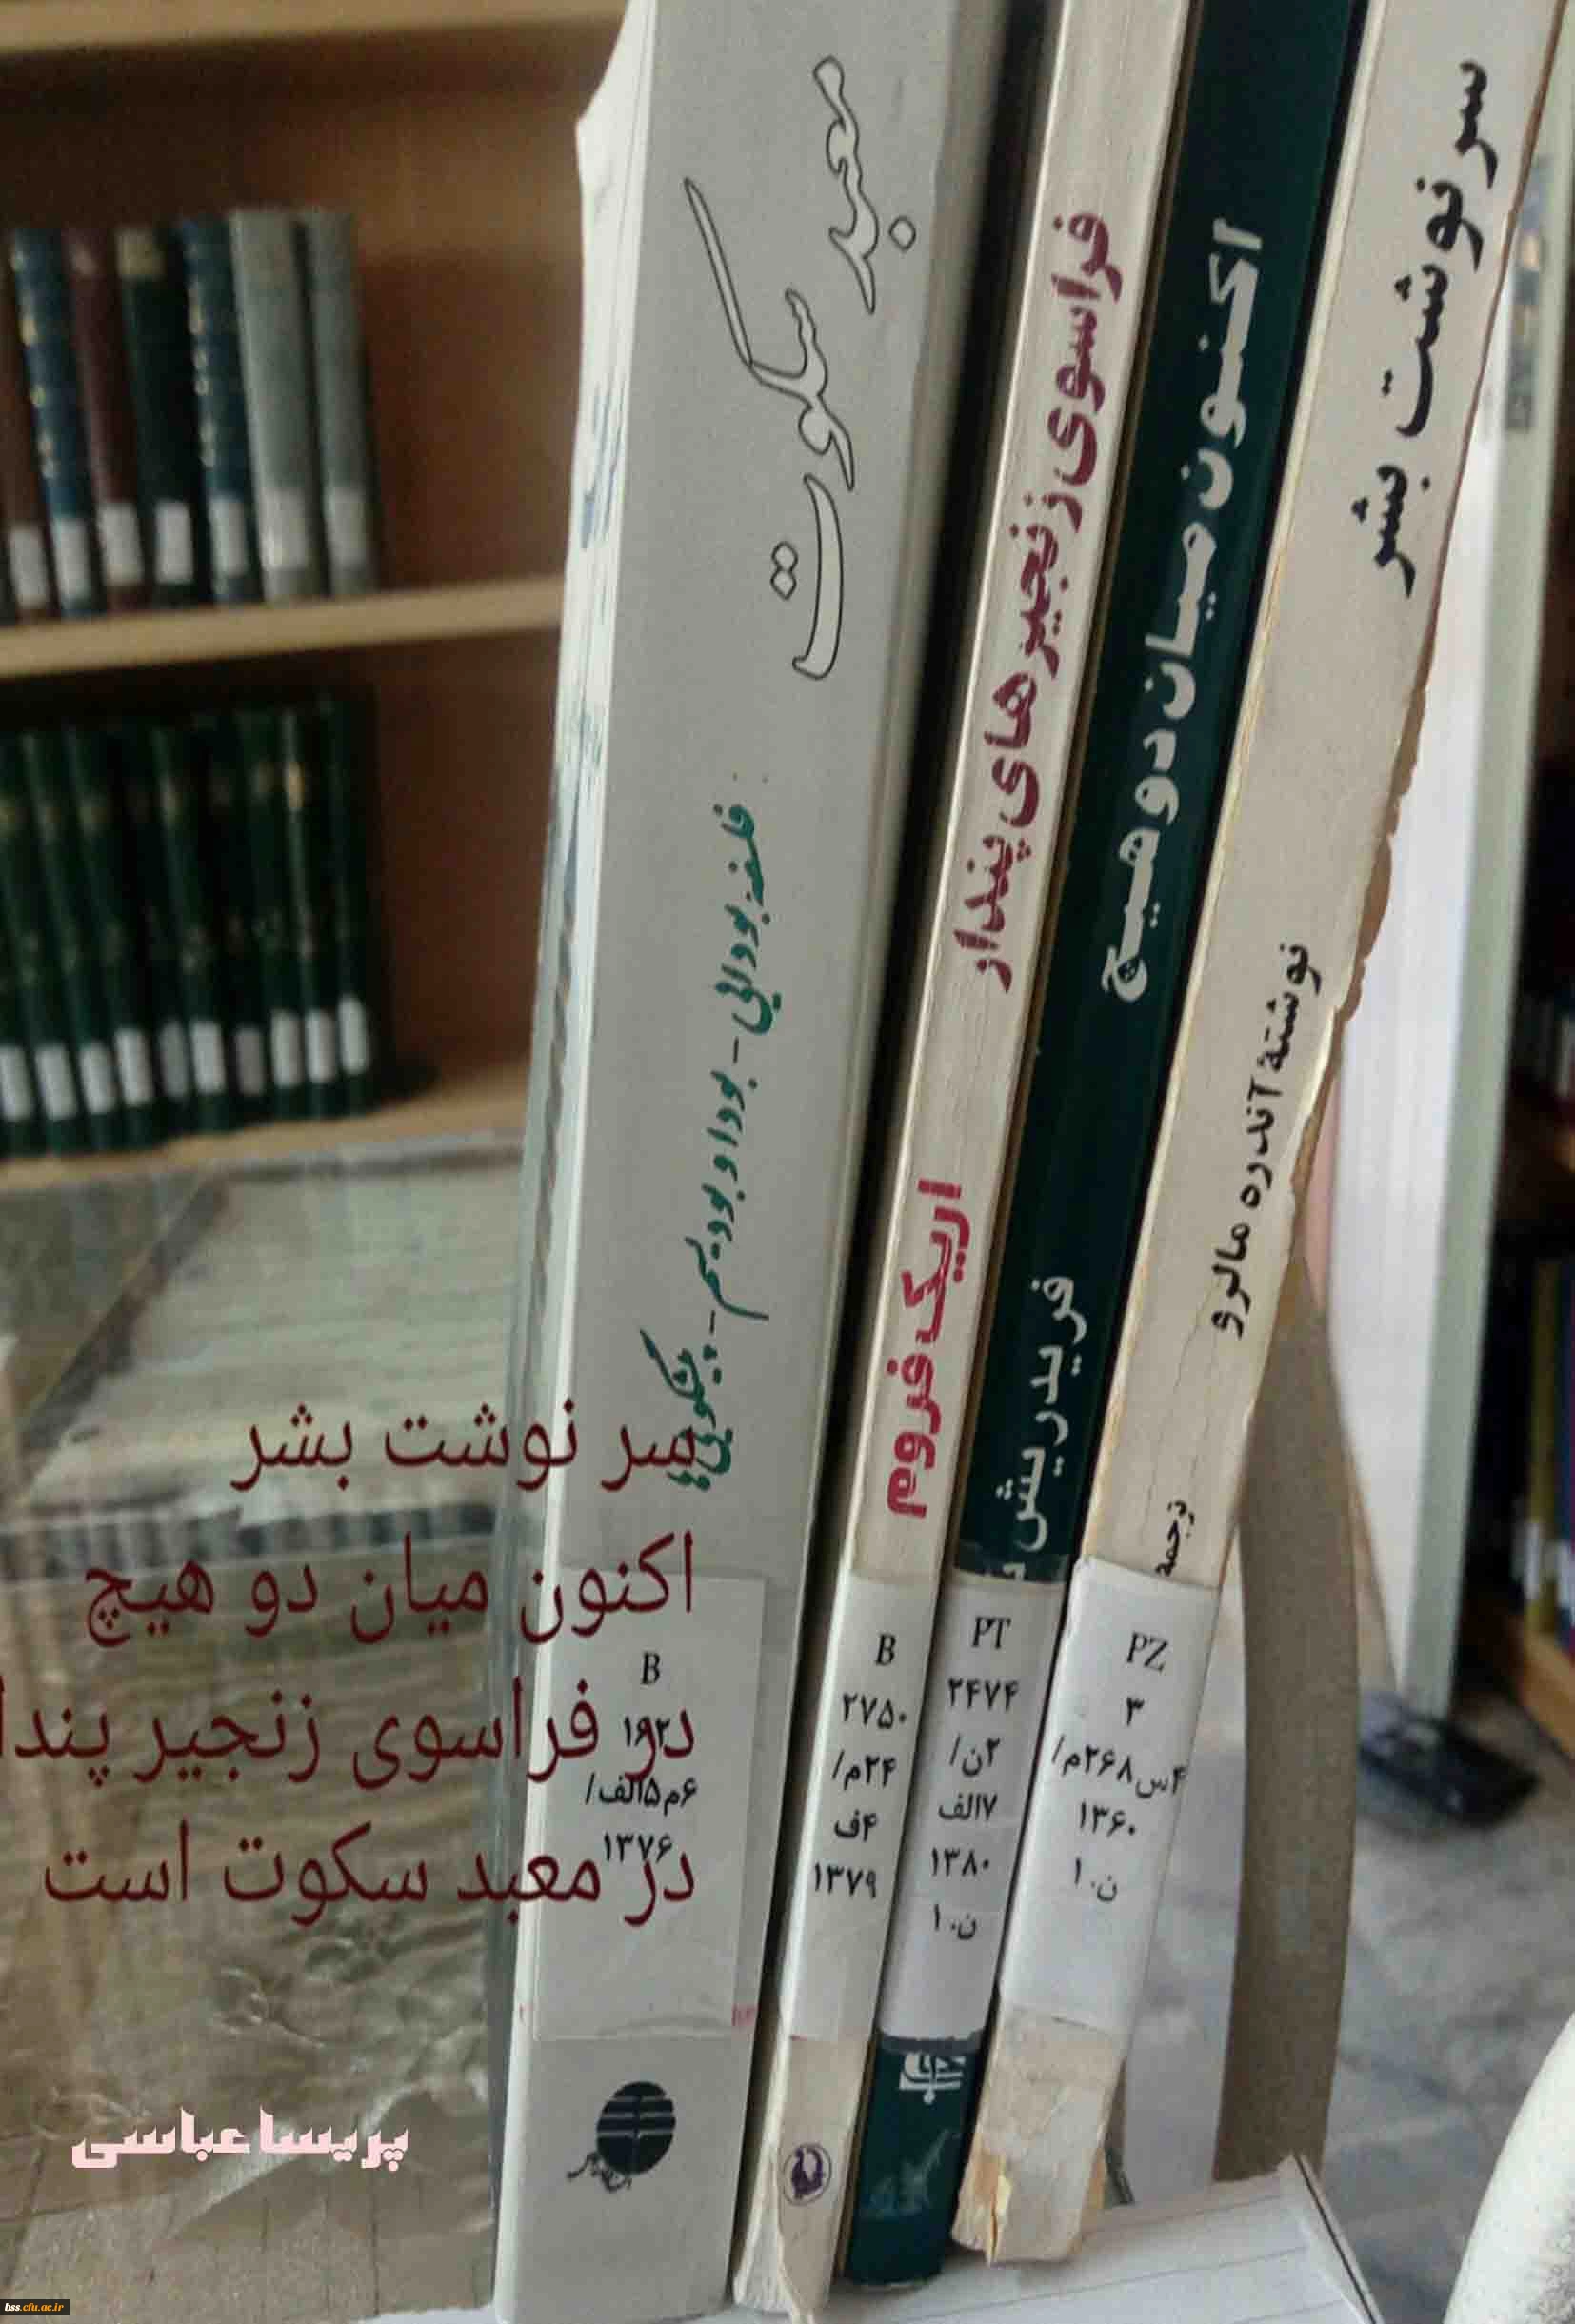 سرنوشت بشر
نوشتهٔ آندره مالرو
ترجمه
PZ
۳
۴س۲۶۸م/
۱۳۶۰
ن.۱
اکنون میان دو هیچ
فریدریش
PT
۲۴۷۴
۲ن/
۷الف
۱۳۸۰
ن.۱
فراسوی زنجیرهای پندار
اریک فروم
B
۲۷۵۰
۲۴م/
۴ف
۱۳۷۹
معبد سکوت
فلسفه بودائی - بودا و بودیسم - پیشگویی‌ها
B
۶م۵الف/
۱۳۷۶
سر نوشت بشر
اکنون میان دو هیچ
در فراسوی زنجیر پندا
در معبد سکوت است
پریسا عباسی
bss.cfu.ac.ir